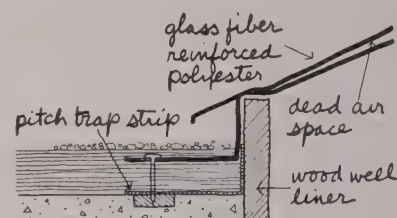 glass fiber
reinforced
polyester
dead air
space
pitch trap strip
wood well
liner